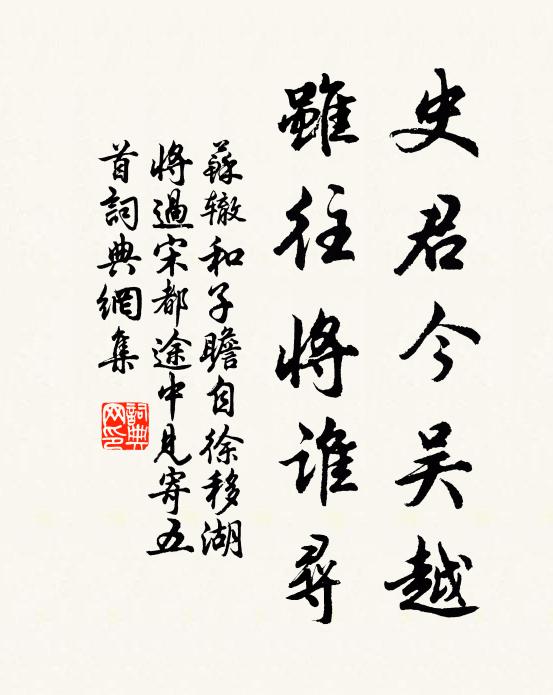 史君今吴越
雖往将谁尋
蘇辙和子瞻自徐移湖
將過宋都途中見寄五
首詞典網集
詞典
网印